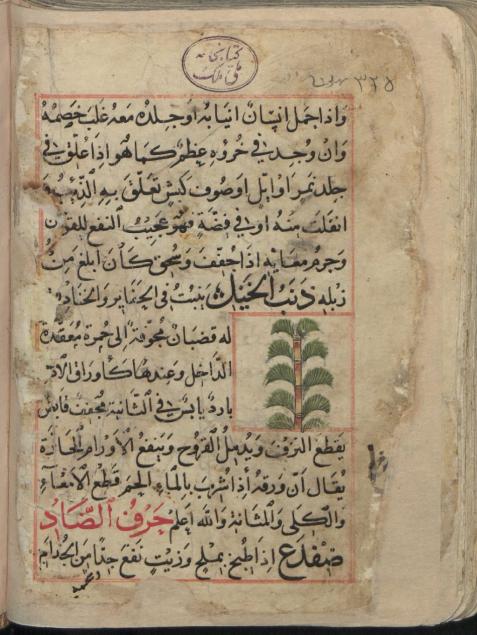 كتابخانه
ملی ملک
٣٢٥
واذا حمل انسان انيابه او جلده معه غلب خصمه
وان وجد في خروه عظم كما هو اذا علق في
جلد نمر او ايل او صوف كبش تعلق به الذئب و
انفلت منه او في فضة فهو عجيب النفع للقولن
وجرم معايه اذا جفف وسحق كان ابلغ من
زبله ذنب الخيل ينبت في الحفاير والخنادق
له قضبان مجوفة الى حمرة معقدة
الداخل وعندها كاوراق الاذ
بارد يابس في الثانية مجفف قابض
يقطع النزف ويدمل القروح وينفع الاورام الحارة
يقال ان ورقه اذا شرب بالماء الحم قطع الامعاء
والكلى والمثانة والله اعلم حرف الضاد
ضفدع اذا طبخ بملح وزيت نفع جدا من الجذام